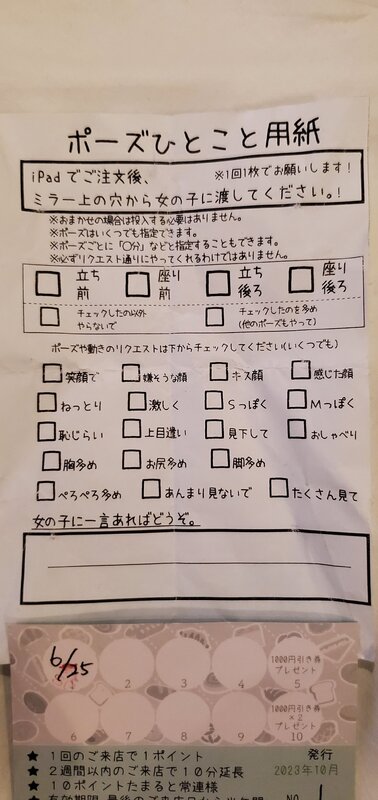 ポーズひとこと用紙
iPadでご注文後、 ※1回1枚でお願いします！
ミラー上の穴から女の子に渡してください。！
※おまかせの場合は投入する必要はありません。
※ポーズはいくつでも指定できます。
※ポーズごとに「〇分」などと指定することもできます。
※必ずリクエスト通りにやってくれるわけではありません。
立ち前 座り前 立ち後ろ 座り後ろ
チェックしたの以外やらないで チェックしたのを多め(他のポーズもやって)
ポーズや動きのリクエストは下からチェックしてください(いくつでも)
笑顔で 嫌そうな顔 キス顔 感じた顔
ねっとり 激しく Sっぽく Mっぽく
恥じらい 上目遣い 見下して おしゃべり
胸多め お尻多め 脚多め
ぺろぺろ多め あんまり見ないで たくさん見て
女の子に一言あればどうぞ。
6/25
1 2 3 4 1000円引き券プレゼント 5
6 7 8 9 1000円引き券×2プレゼント 10
★ 1回のご来店で1ポイント 発行
★ 2週間以内のご来店で10分延長 2023年10月
★ 10ポイントたまると常連様
NO. 1